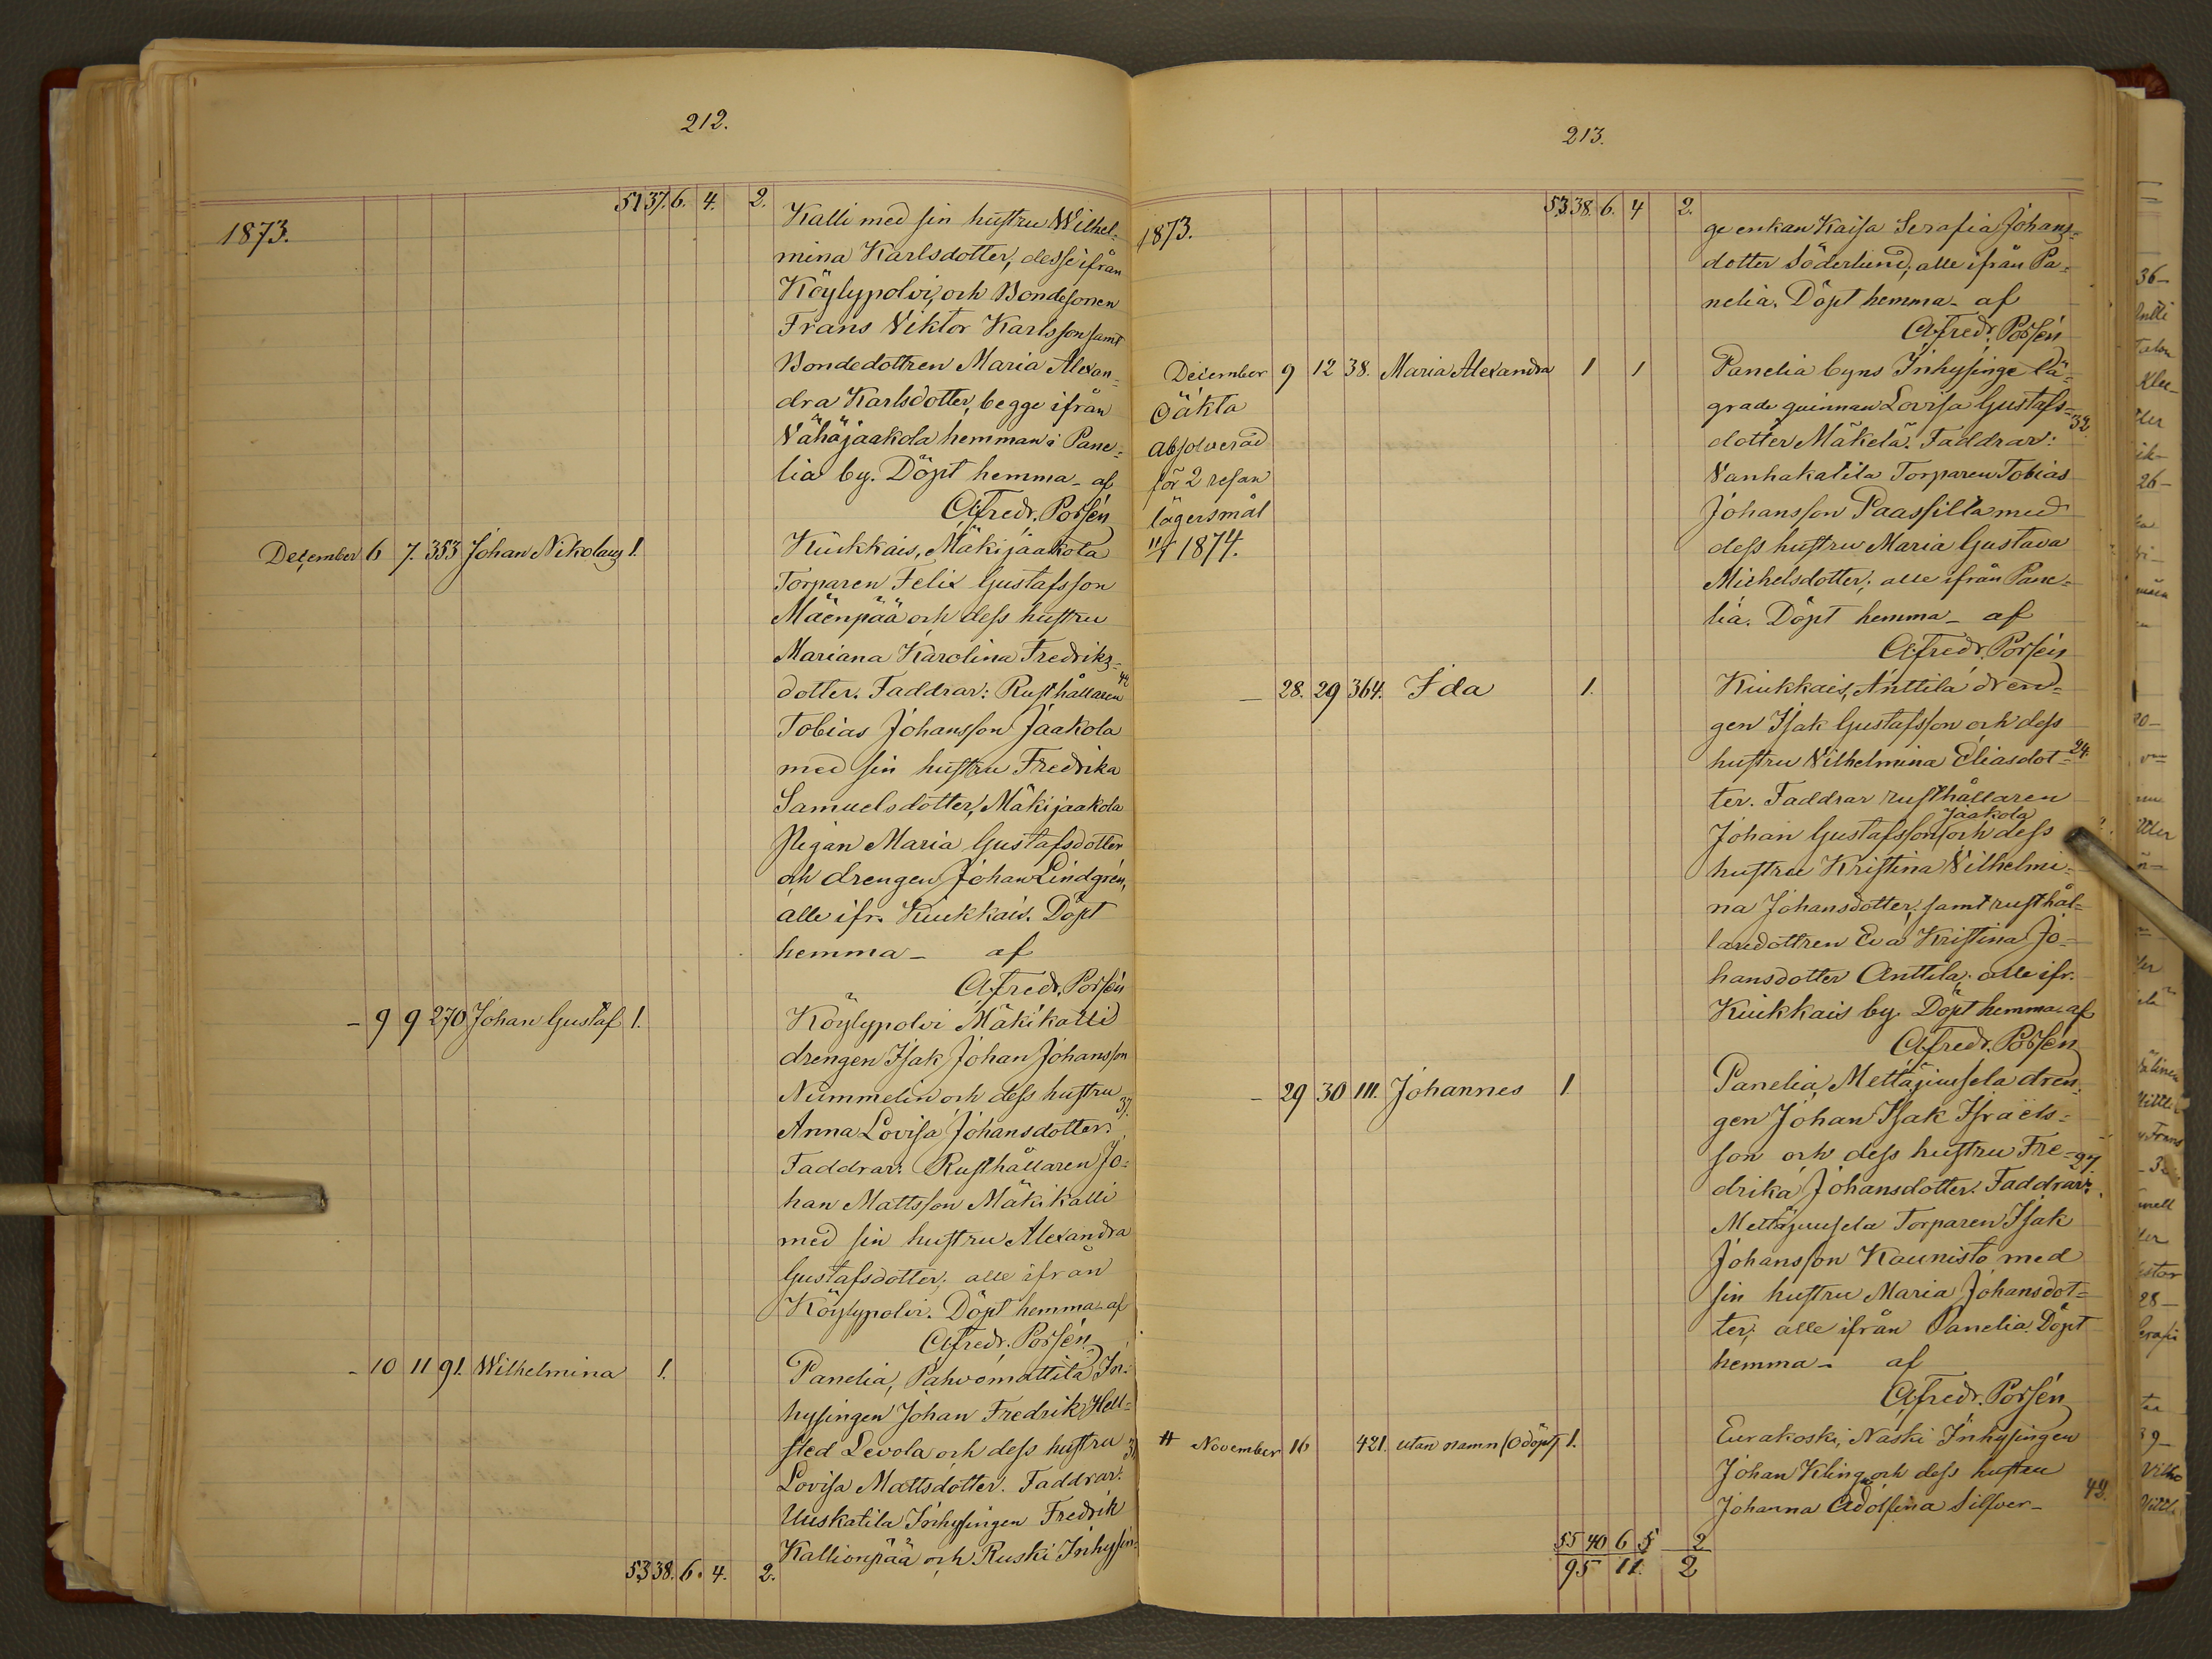 212.
51 37. 6. 4. 2.
1873.
Kalli med sin hustru Wilhel=
mina Karlsdotter, desse ifrån
Köylypolvi, och Bondesonen
Frans Viktor Karlsson samt
Bondedottren Maria Alexan=
dra Karlsdotter, begge ifrån
Vähäjaakola hemman i Pane=
lia by. Döpt hemma - af
Alfredr. Porsén
December 6 7. 353 Johan Nikolaus 1. Kiukkais, Mäkijaakola
Torparen Felix Gustafsson
Mäenpää och dess hustru
Mariana Karolina Fredriks=
dotter. Faddrar: Rusthållaren
Tobias Johansson Jaakola
med sin hustru Fredrika
Samuelsdotter, Mäkijaakola
Pigan Maria Gustafsdotter
och drengen Johan Lindgrén,
alle ifr. Kiukkais. Döpt
hemma - af
Alfredr. Porsén
- 9 9 270 Johan Gustaf 1. Köylypolvi Mäkikalli
drengen Isak Johan Johansson
Nummelin och dess hustru 37.
Anna Lovisa Johansdotter.
Faddrar: Rusthållaren Jo=
han Mattsson Mäkikalli
med sin hustru Alexandra
Gustafsdotter; alle ifrån
Köylypolvi. Döpt hemma - af
Alfredr. Porsén
- 10 11 91. Wilhelmina 1. Panelia, Pahvomattila In=
hysingen Johan Fredrik Hell=
sted Levola och dess hustru
Lovisa Mattsdotter. Faddrar:
Uuskatila Inhysingen Fredrik
Kallionpää och Ruski Inhysin=
53 38. 6. 4. 2.
213.
53 38. 6. 4 2.
1873.
ge enkan Kaisa Serafia Johans=
dotter Söderlund; alle ifrån Pa=
nelia. Döpt hemma - af
Alfredr. Porsén
December 9 12 38. Maria Alexandra 1 1 Panelia byns Inhysinge lä=
Oäkta
grade quinnan Lovisa Gustafs= 32.
absolverad
dotter Mäkelä. Faddrar:
för 2 resan
Vanhakatila Torparen Tobias
lägersmål
Johansson Paassilta med
1874.
dess hustru Maria Gustava
Michelsdotter; alle ifrån Pane=
lia. Döpt hemma - af
Alfredr. Porsén
- 28. 29 364. Ida 1. Kiukkais, Anttila dren=
gen Isak Gustafsson och dess
hustru Vilhelmina Eliasdot= 24.
ter. Faddrar rusthållaren
Jaakola
Johan Gustafsson och dess
hustru Kristina Vilhelmi=
na Johansdotter, samt rusthål=
laredottren Eva Kristina Jo=
hansdotter Anttila; alle ifr.
Kiukkais by. Döpt hemma - af
Alfredr. Porsén
- 29 30 111. Johannes 1. Panelia, Mettäjuusela dren=
gen Johan Isak Israels=
son och dess hustru Fre= 27.
drika Johansdotter. Faddrar:
Mettäjuusela Torparen Isak
Johansson Kaunisto med
sin hustru Maria Johansdot=
ter; alle ifrån Panelia. Döpt
hemma - af
Alfredr. Porsén
# November 16 421. utan namn (Odöpt) 1. Eurakoski, Naski Inhysingen
Johan Kling och dess hustru
Johanna Adolfina Silfver-
55 40 6 5 2
95 11. 2